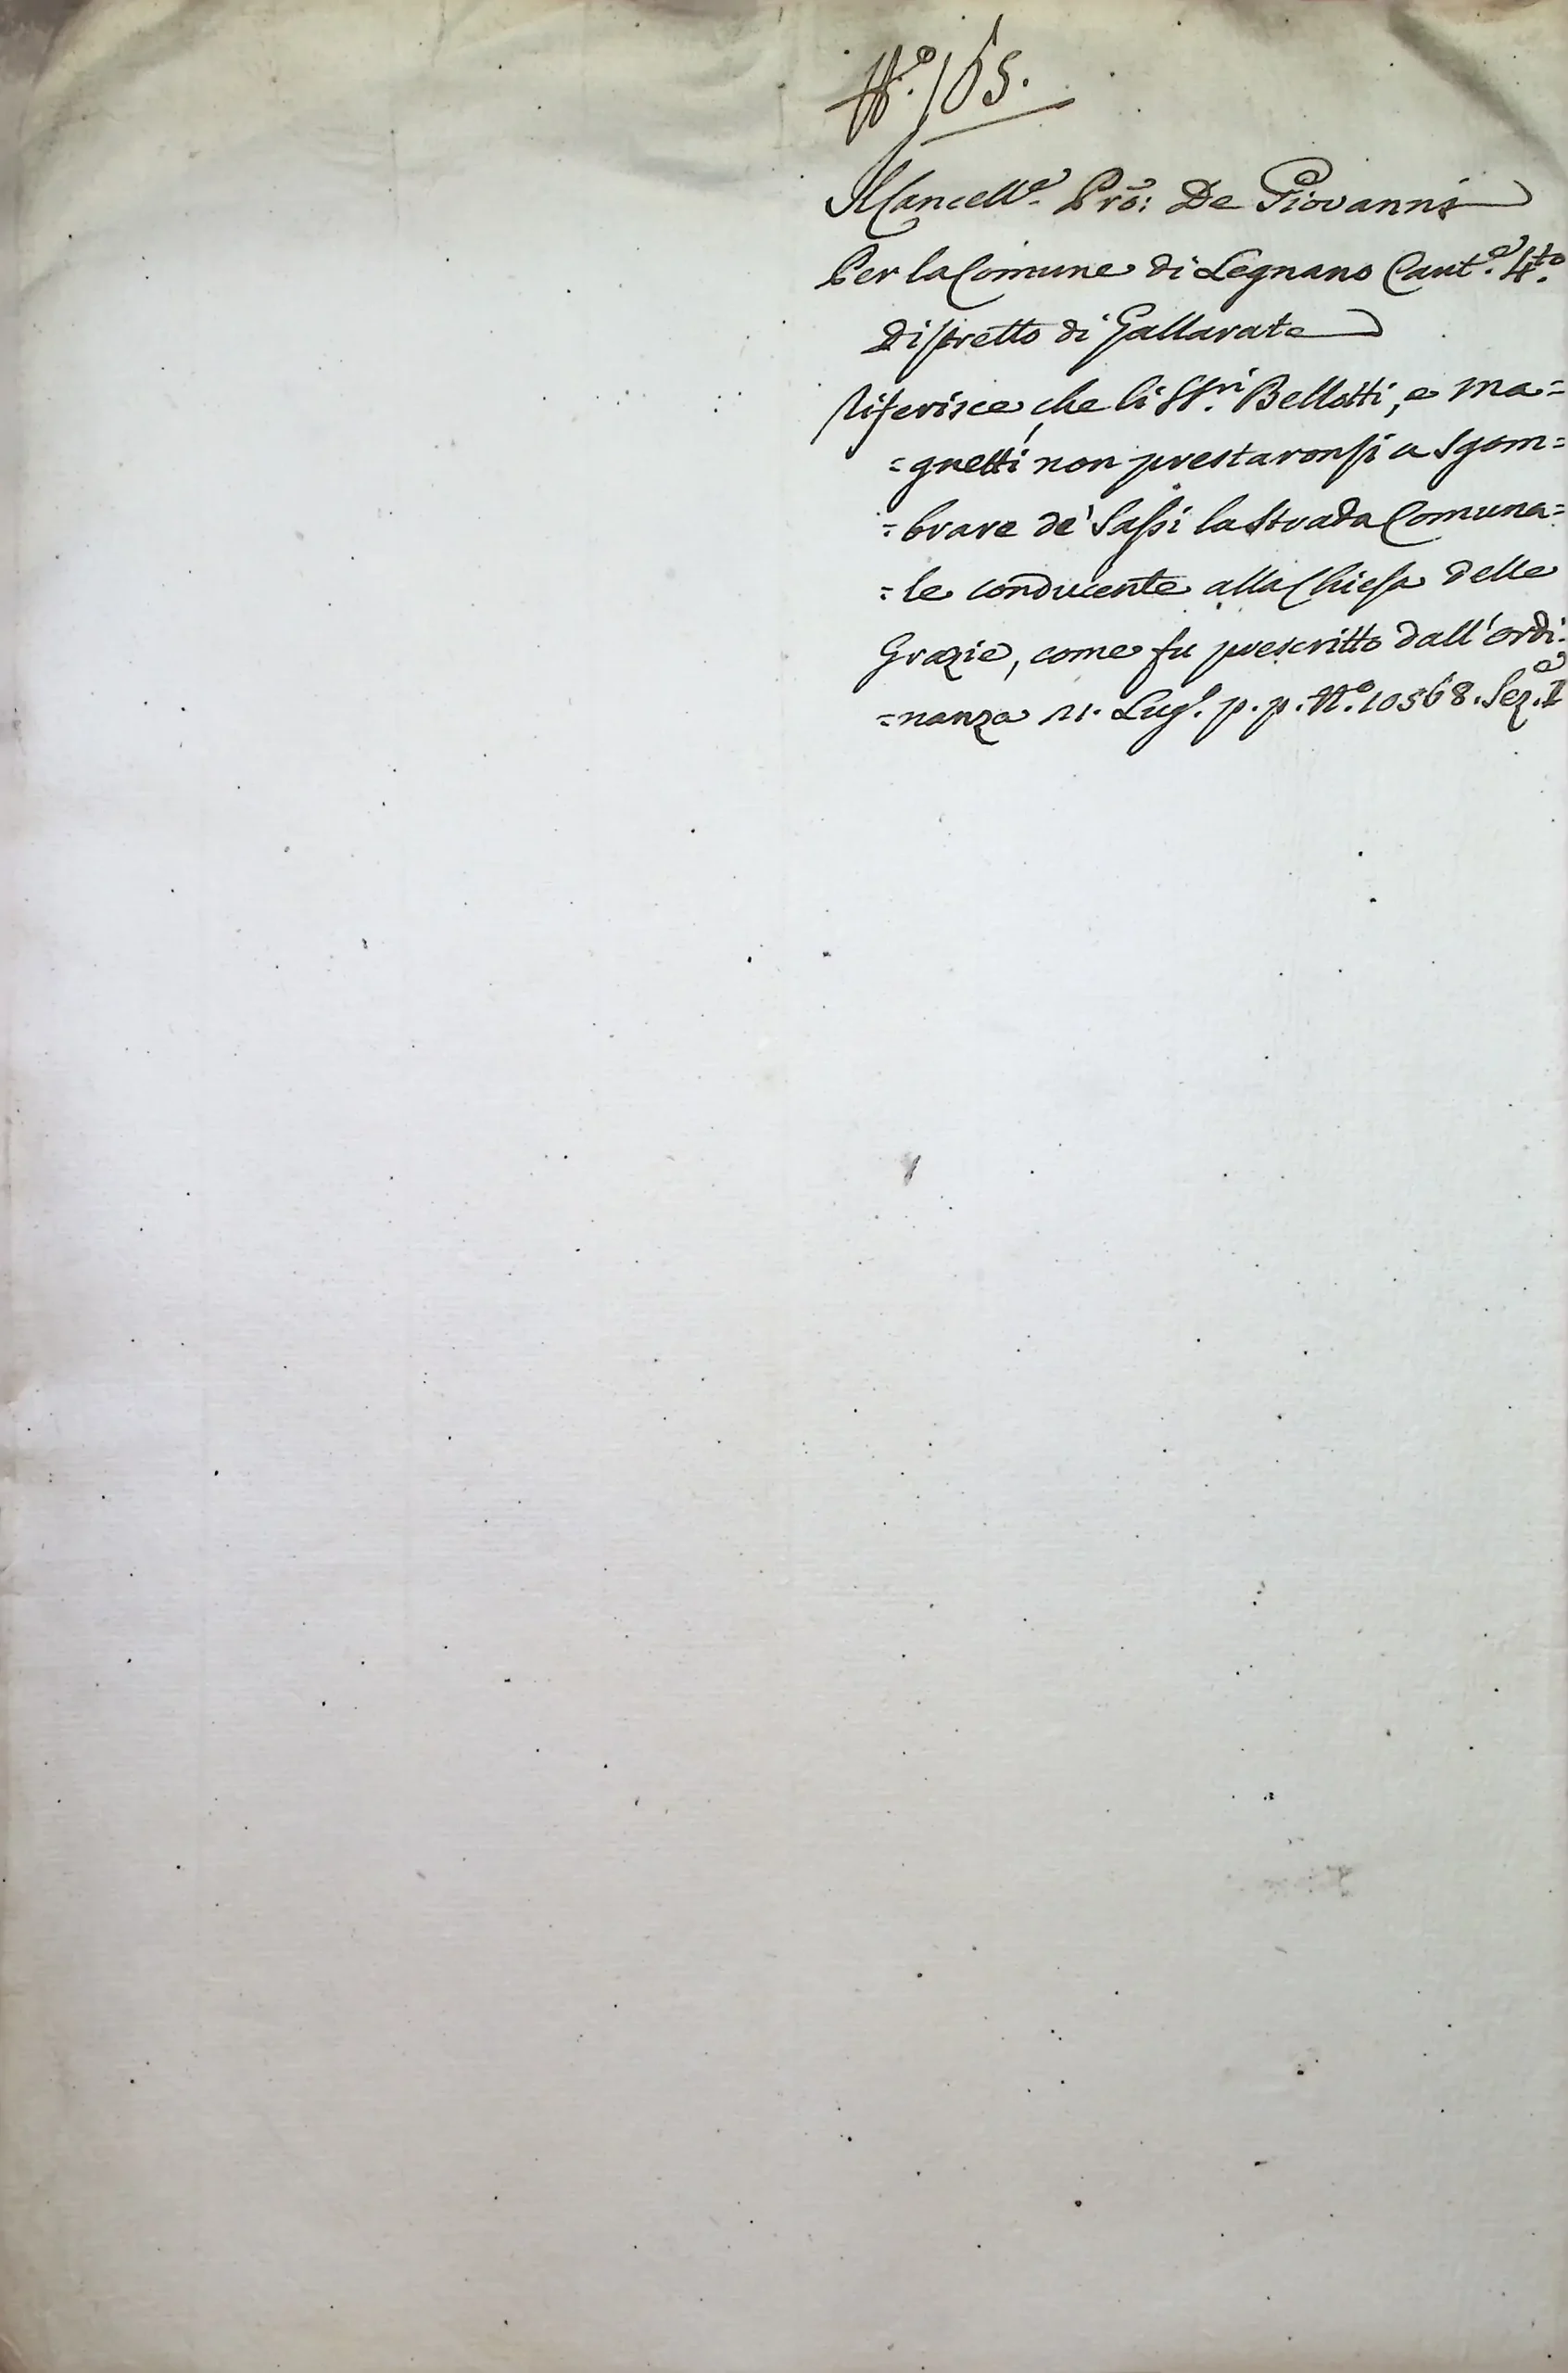 N.° 165.
Il Cancell.e Pro: De Giovanni
Per la Comune di Legnano Cant.e 4.to
Distretto di Gallarate
Riferisce, che li SS.ri Bellotti, e Ma=
=gnetti non prestaronsi a sgom=
=brare de' Sassi la Strada Comuna=
=le conducente alla Chiesa delle
Grazie, come fu prescritto dall'ordi=
=nanza 21. Lug.o p. p. N.° 10568. Sez.e I